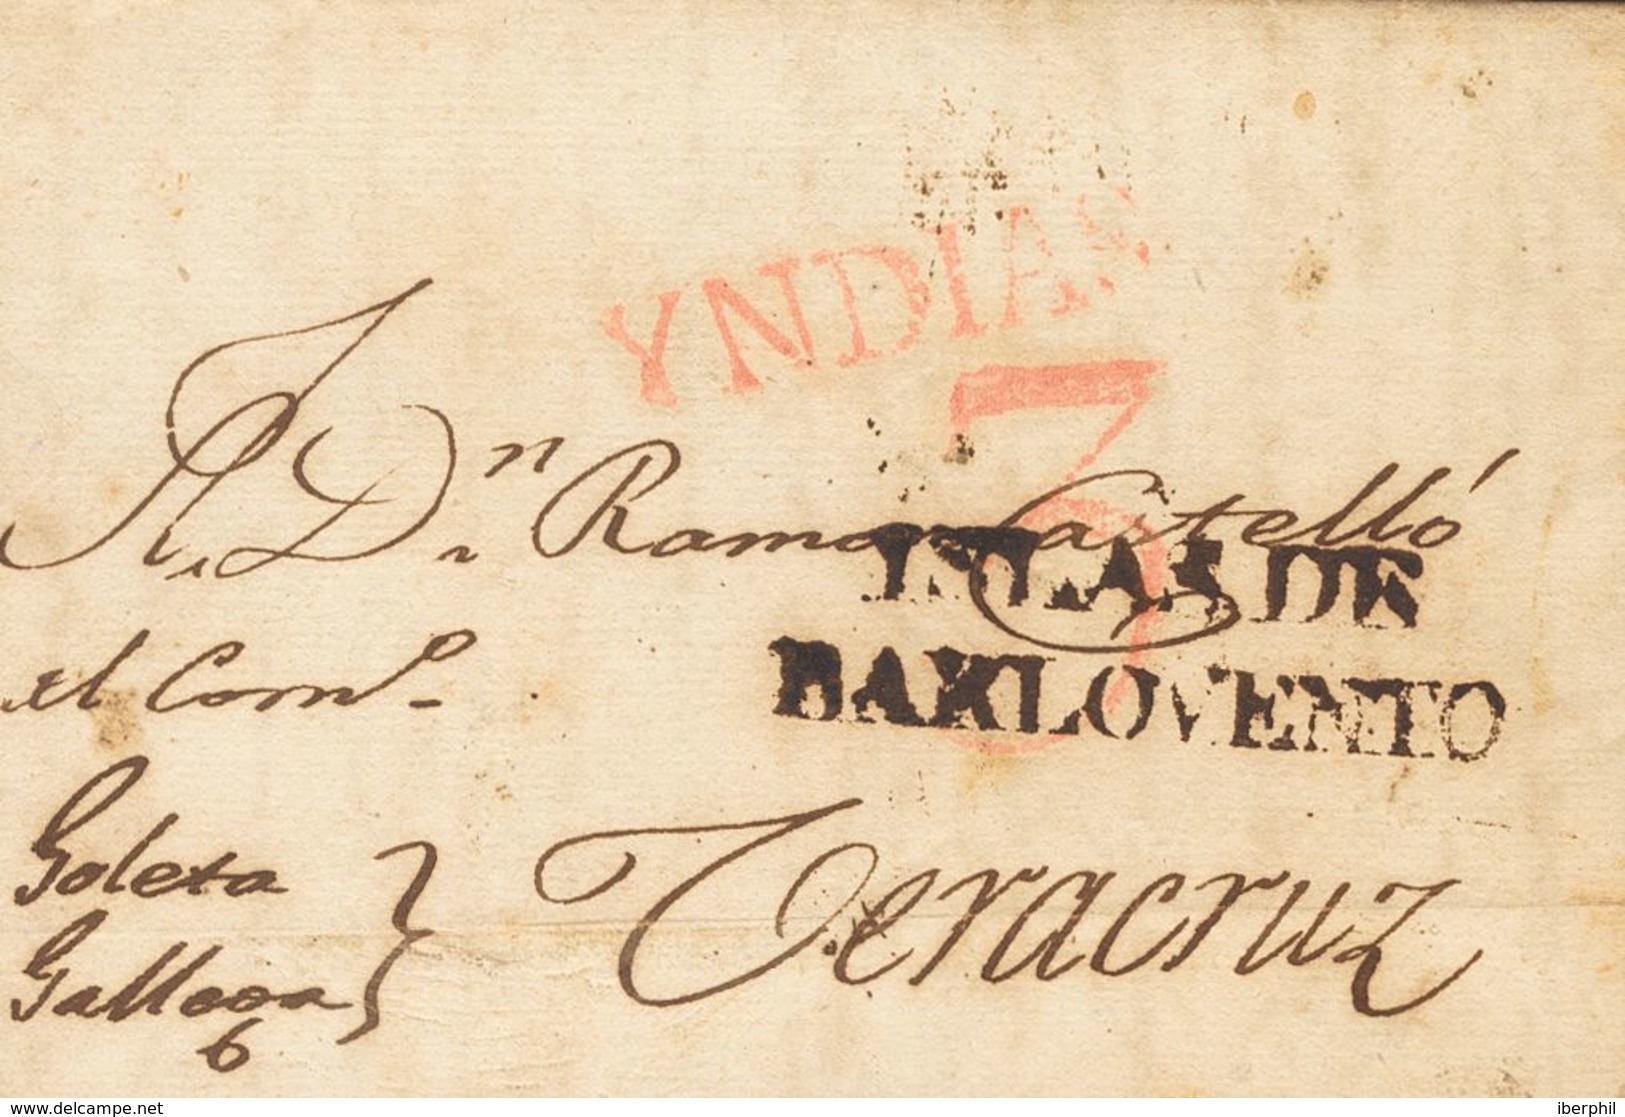 YNDIAS
3
A. Dn. Dn Ramon Castelló
ISLAS DE
el Como
BARLOVENTO
Goleta
Veracruz
6
www.delcampe.net
iberphil